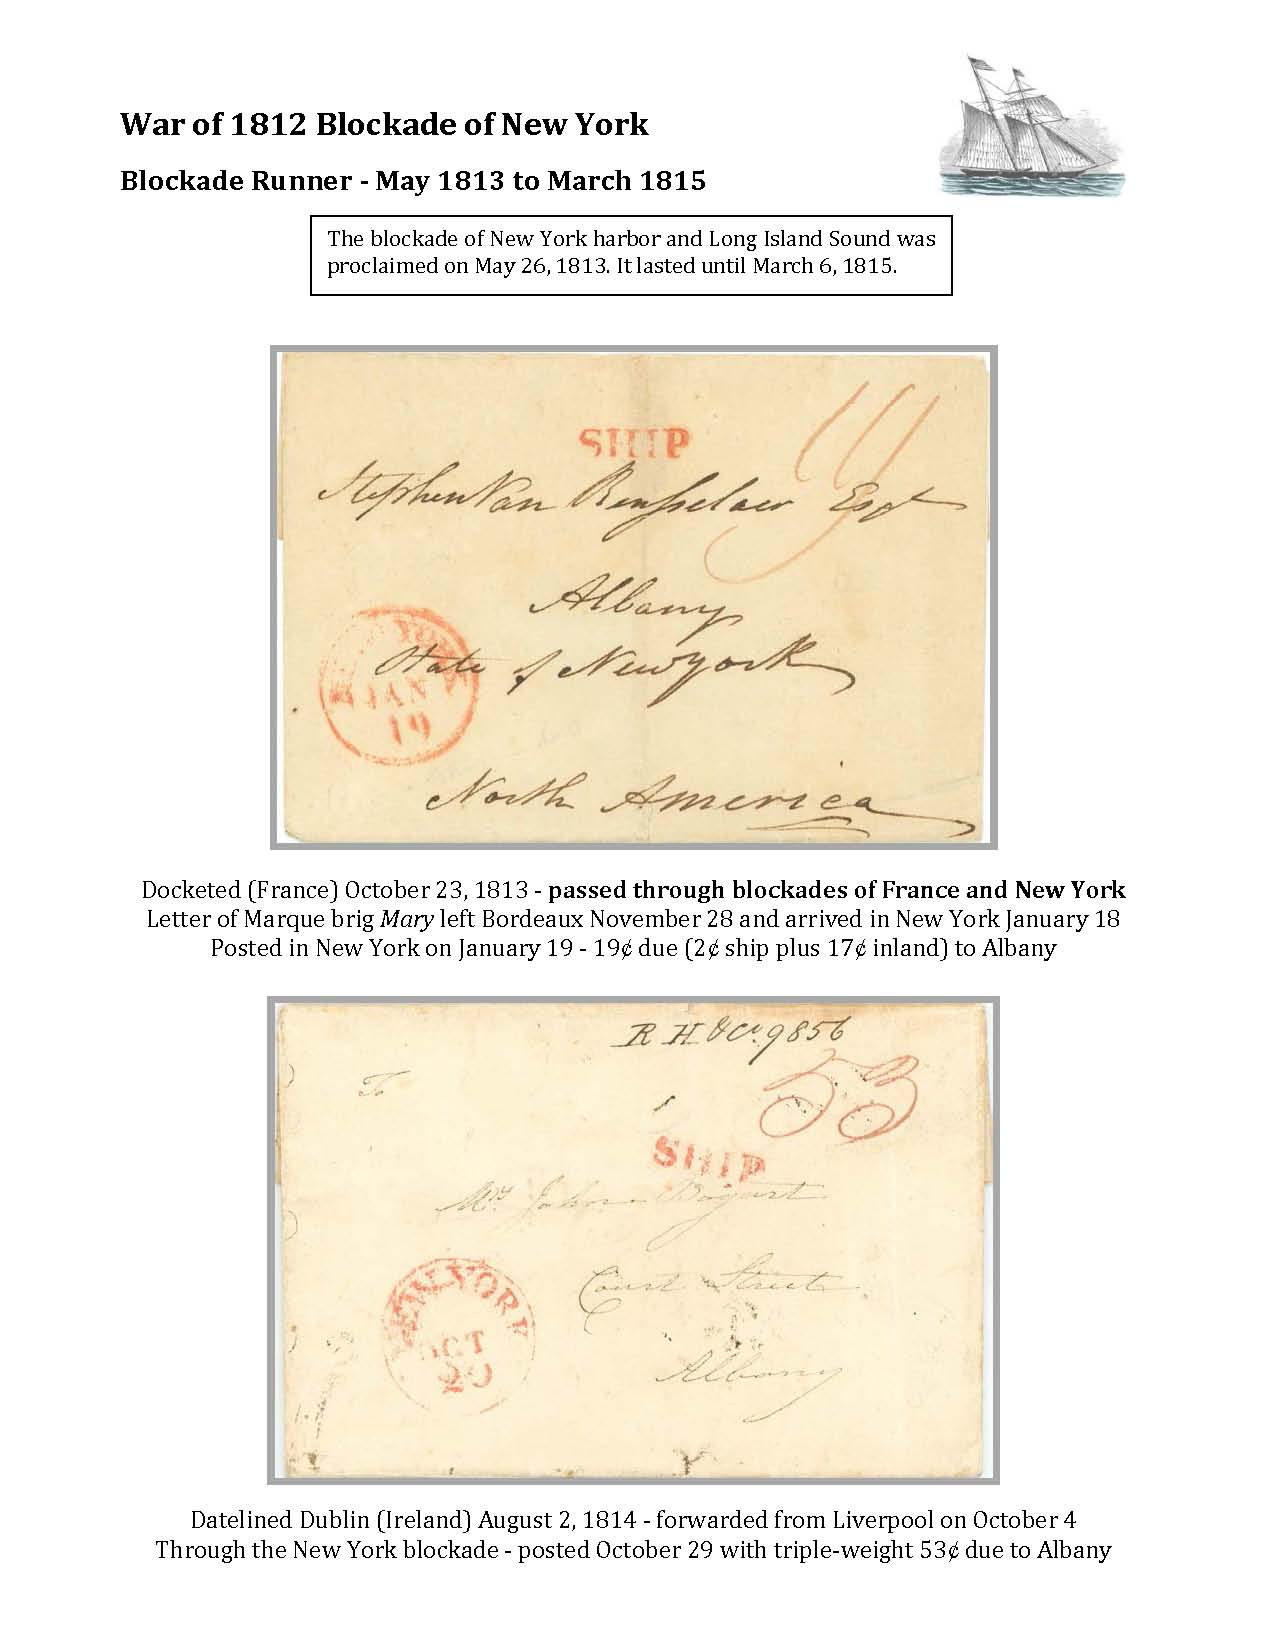 War of 1812 Blockade of New York
Blockade Runner - May 1813 to March 1815
The blockade of New York harbor and Long Island Sound was
proclaimed on May 26, 1813. It lasted until March 6, 1815.
SHIP
19
Stephen Van Rensselaer Esqr
Albany
State of New york
NEW YORK
JAN
19
North America
Docketed (France) October 23, 1813 - passed through blockades of France and New York
Letter of Marque brig Mary left Bordeaux November 28 and arrived in New York January 18
Posted in New York on January 19 - 19¢ due (2¢ ship plus 17¢ inland) to Albany
R H & Co. 9856
53
To
SHIP
John Bogart
Court Street
NEW YORK
OCT
29
Albany
Datelined Dublin (Ireland) August 2, 1814 - forwarded from Liverpool on October 4
Through the New York blockade - posted October 29 with triple-weight 53¢ due to Albany